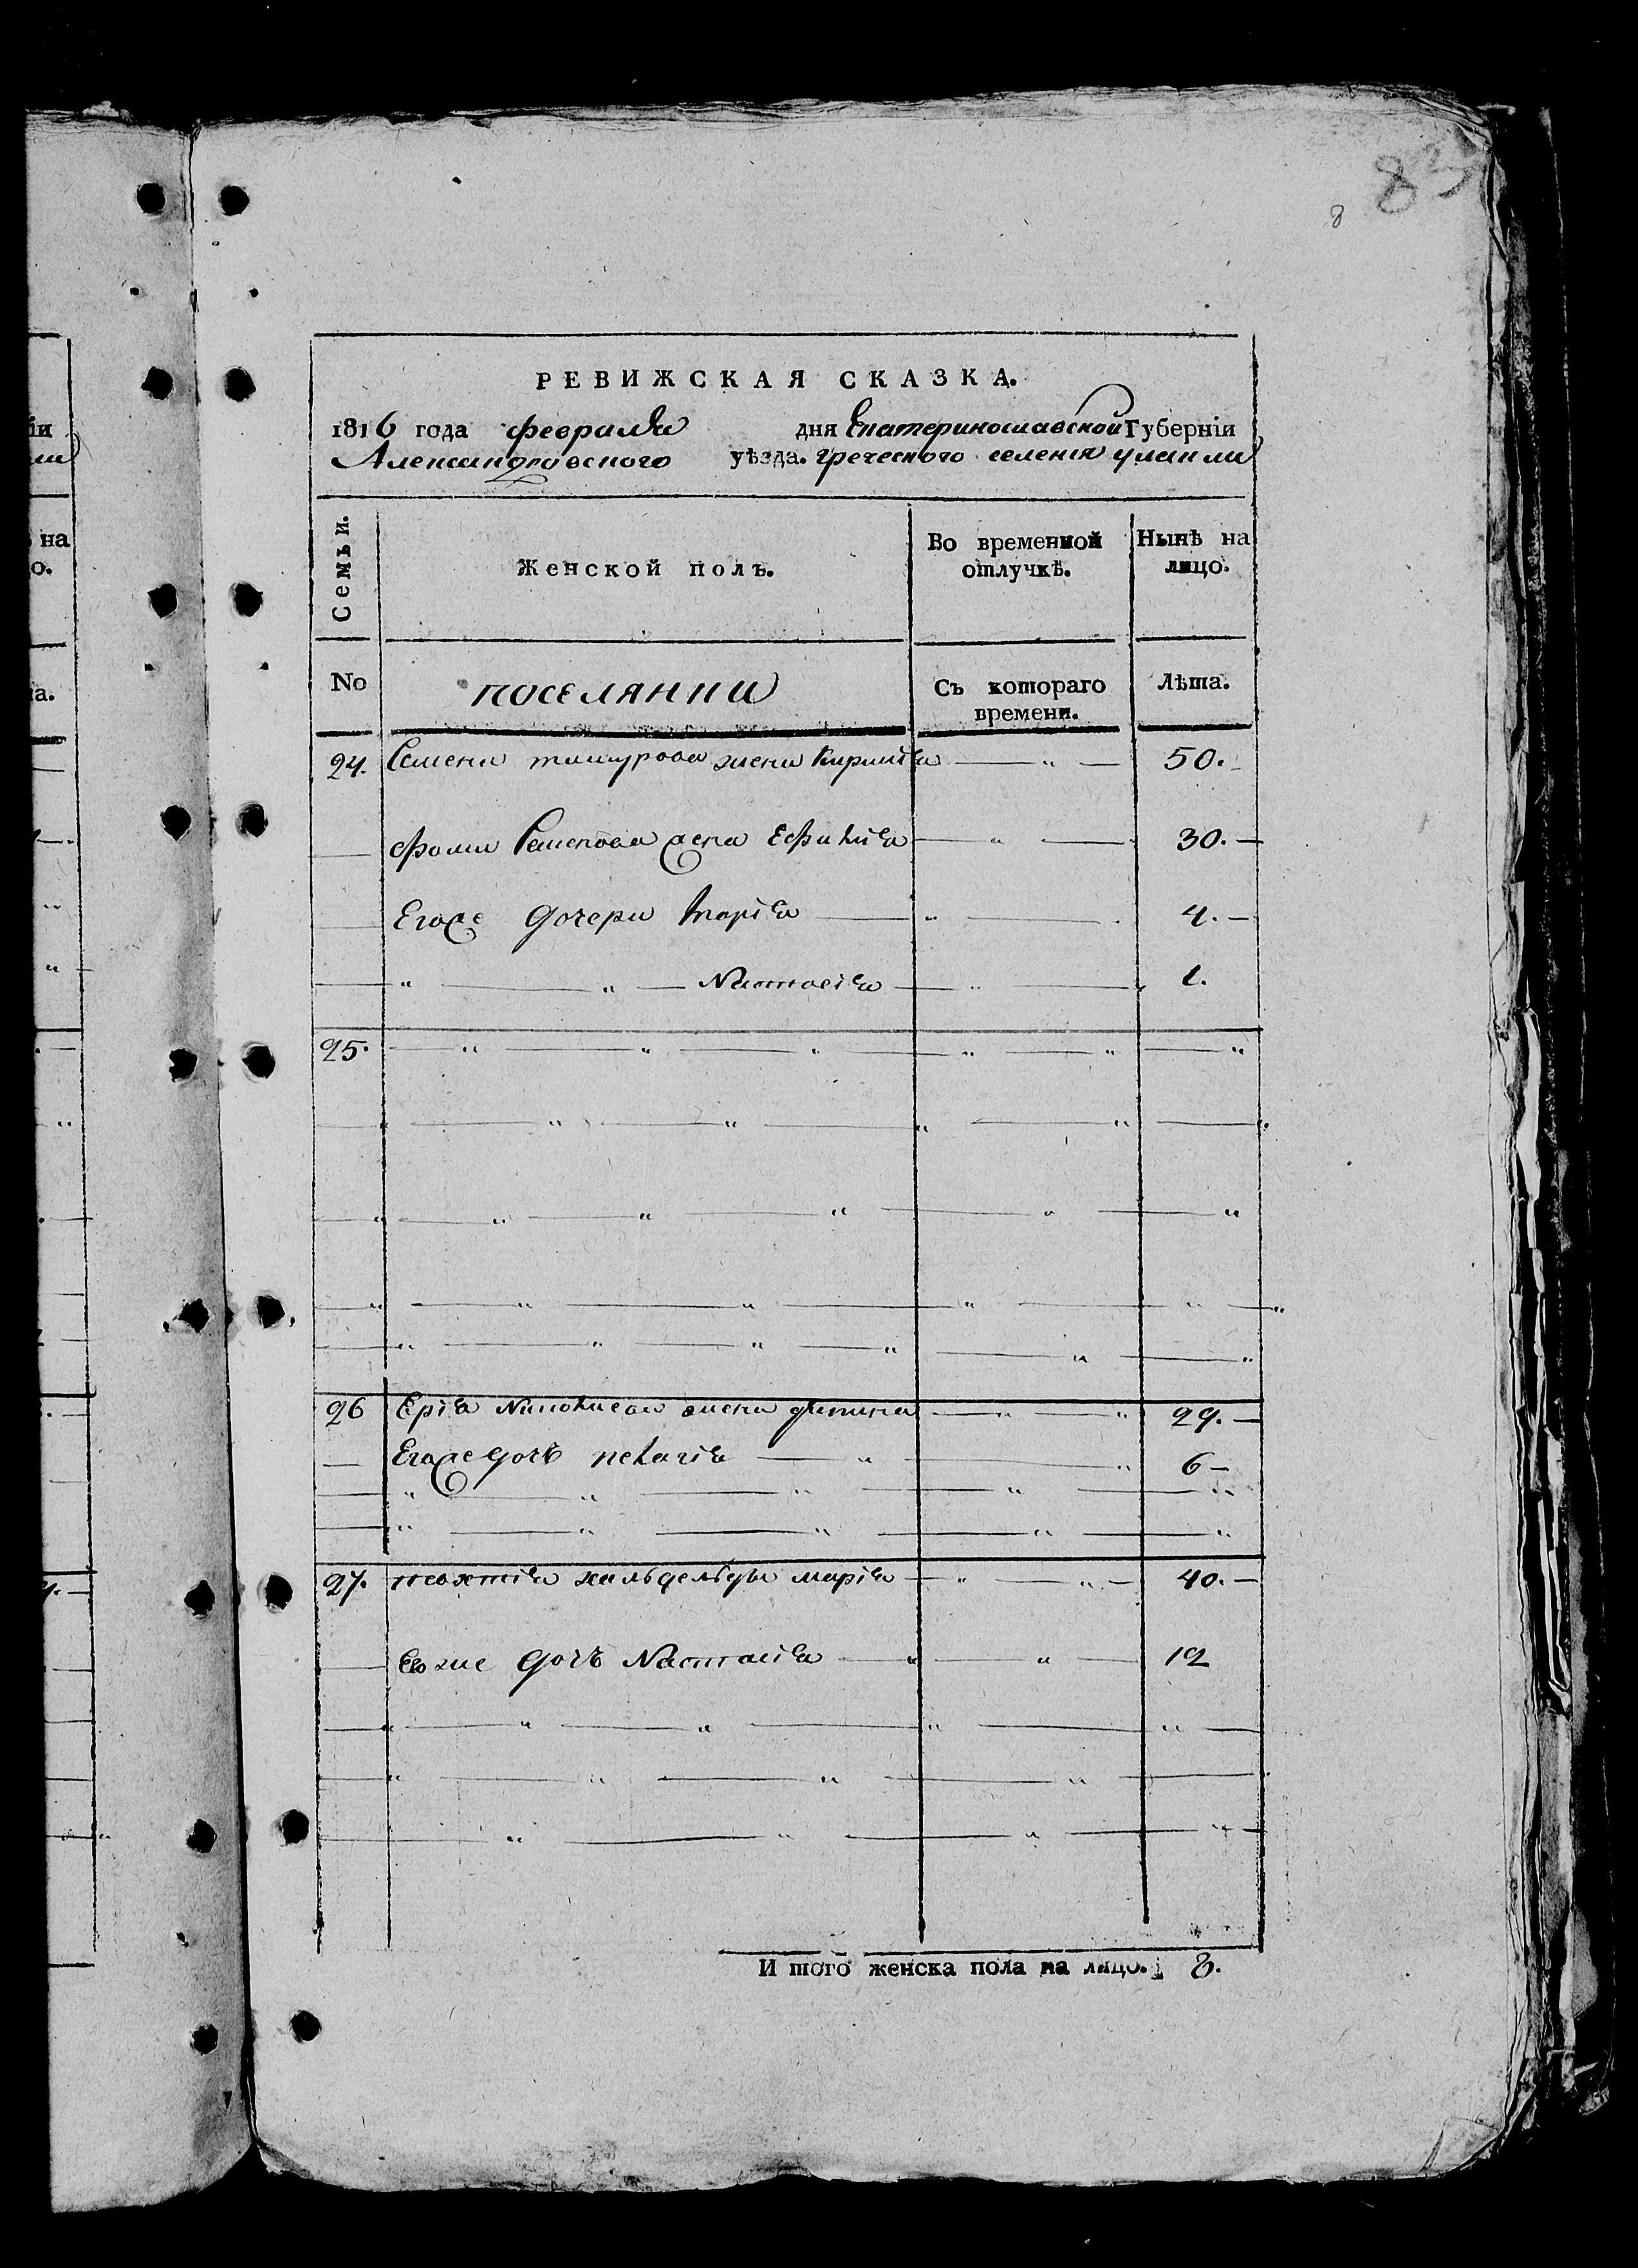 83
8
РЕВИЖСКАЯ СКАЗКА.
1816 года февраля дня Екатеринославской Губерніи
Александровского уѣзда. греческого селения улаклы
Семьи.
Женской полъ.
Во временной отлучкѣ.
Нынѣ на лицо.
No
поселянки
Съ котораго времени.
Лѣта.
24. Семена жена 50.
Фомы Семенова жена Ефимія 30.
Егоже дочери Марія 4.
Настасія 1.
25.
26 жена 29.
Егоже дочь пелагія 6
27. марія 40.
Еяже дочь Настасія 12
И того женска пола на лицо. 8.